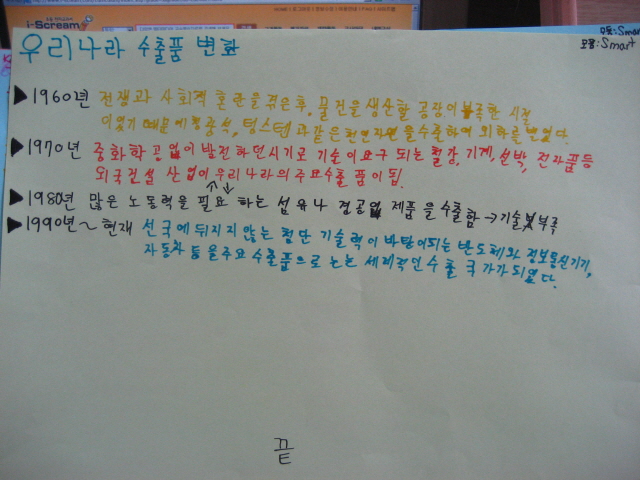 i-Scream
모둠:Smart
모둠:Smart
우리나라 수출품 변화
▶1960년 전쟁과 사회적 혼란을 겪은후, 물건을 생산할 공장이 부족한 시절
이였기 때문에 중석, 텅스텐과 같은 천연자원을 수출하여 외화를 벌었다.
▶1970년 중화학 공업이 발전하던시기로 기술이 요구 되는 철강, 기계, 선박, 전자품등
외국건설 산업이 우리나라의 주요수출 품이 됨.
▶1980년 많은 노동력을 필요 하는 섬유나 경공업 제품을 수출함 → 기술 부족
▶1990년~현재 선국에 뒤지지 않는 첨단 기술력이 바탕이되는 반도체와 정보통신기기,
자동차 등을 주요 수출품으로 하는 세계적인 수출 국가가 되었다.
끝